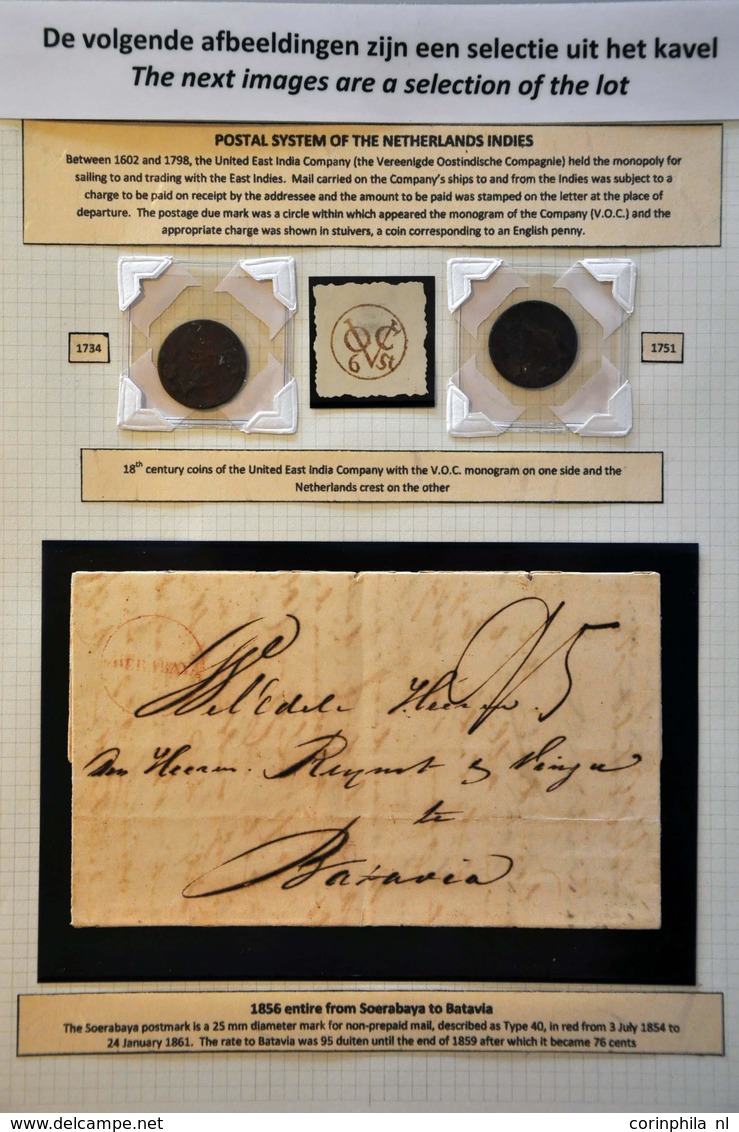 De volgende afbeeldingen zijn een selectie uit het kavel
The next images are a selection of the lot
POSTAL SYSTEM OF THE NETHERLANDS INDIES
Between 1602 and 1798, the United East India Company (the Vereenigde Oostindische Compagnie) held the monopoly for
sailing to and trading with the East Indies. Mail carried on the Company's ships to and from the Indies was subject to a
charge to be paid on receipt by the addressee and the amount to be paid was stamped on the letter at the place of
departure. The postage due mark was a circle within which appeared the monogram of the Company (V.O.C.) and the
appropriate charge was shown in stuivers, a coin corresponding to an English penny.
1734
1751
18th century coins of the United East India Company with the V.O.C. monogram on one side and the
Netherlands crest on the other
Wel Edele Heeren
den Heeren
te
Batavia
1856 entire from Soerabaya to Batavia
The Soerabaya postmark is a 25 mm diameter mark for non-prepaid mail, described as Type 40, in red from 3 July 1854 to
24 January 1861. The rate to Batavia was 95 duiten until the end of 1859 after which it became 76 cents
www.delcampe.net
corinphila nl